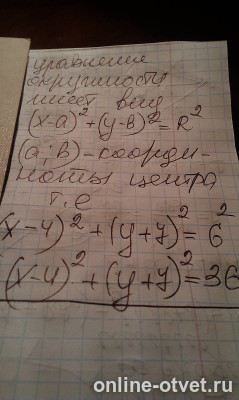 уравнение
окружности
имеет вид
(x-a)²+(y-в)²=R²
(a;в)-коорди-
наты центра
т.е
(x-4)²+(y+7)²=6²
(x-4)²+(y+7)²=36
online-otvet.ru